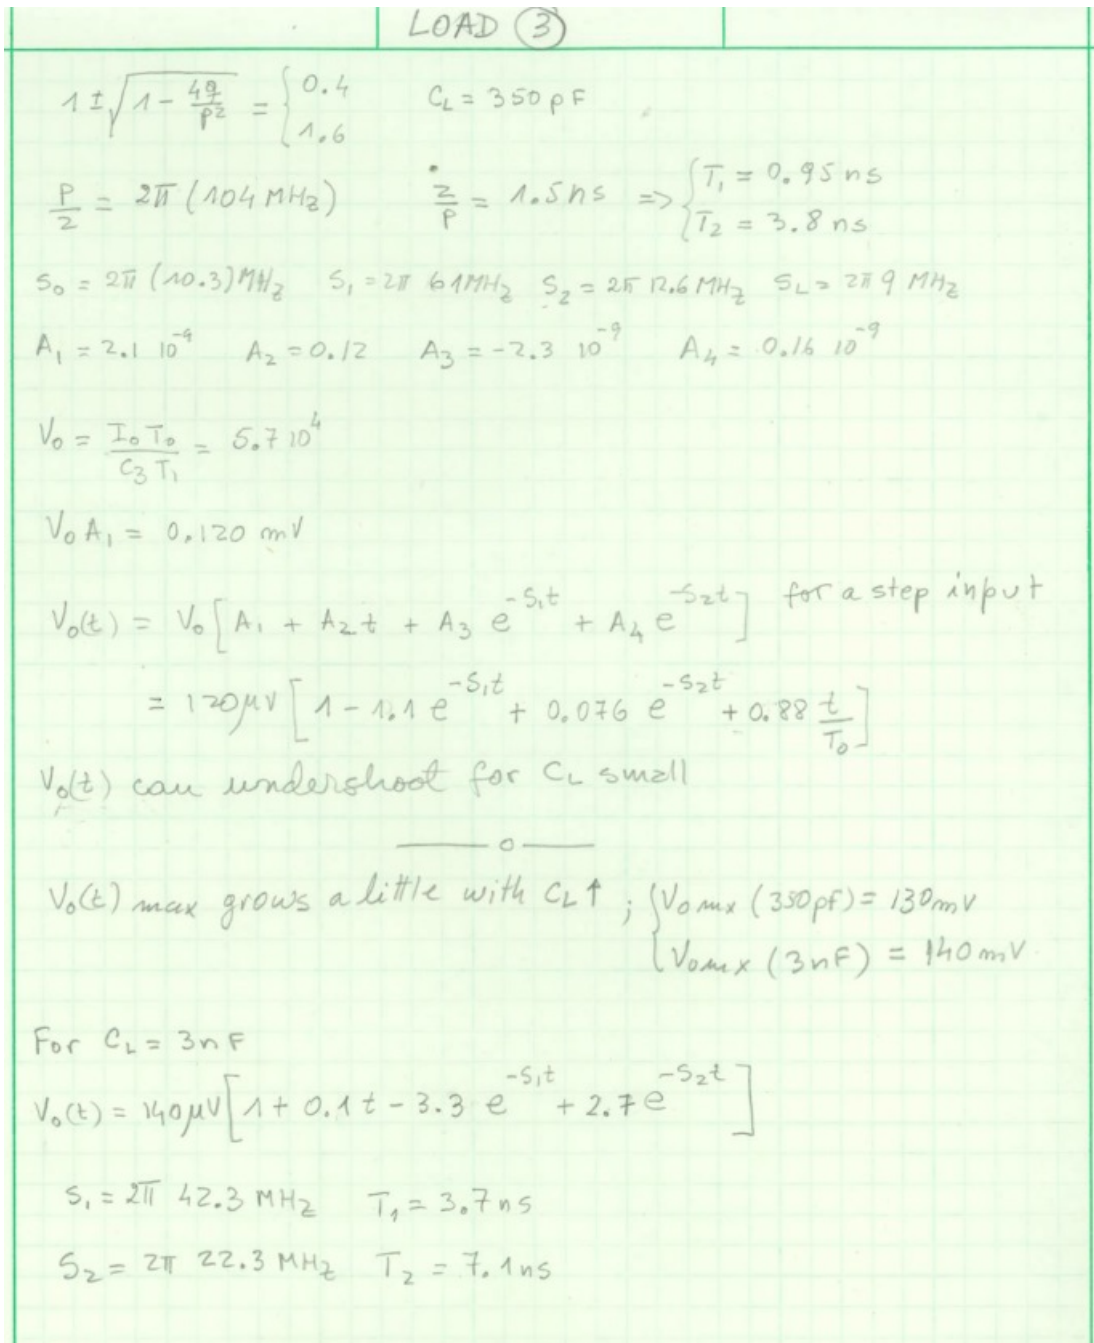 LOAD ③
1 ± √(1 - 4q/p²) = { 0.4 1.6 C_L = 350 pF
p/2 = 2π (104 MHz) 2/p = 1.5 ns => { T₁ = 0.95 ns T₂ = 3.8 ns
s₀ = 2π (10.3) MHz s₁ = 2π 61 MHz s₂ = 2π 12.6 MHz s_L = 2π 9 MHz
A₁ = 2.1 10⁻⁹ A₂ = 0.12 A₃ = -2.3 10⁻⁹ A₄ = 0.16 10⁻⁹
V₀ = I₀T₀/C₃T₁ = 5.7 10⁴
V₀A₁ = 0.120 mV
V₀(t) = V₀ [A₁ + A₂t + A₃ e^(-s₁t) + A₄ e^(-s₂t)] for a step input
= 120μV [1 - 1.1 e^(-s₁t) + 0.076 e^(-s₂t) + 0.88 t/T₀]
V₀(t) can undershoot for C_L small
—— o ——
V₀(t) max grows a little with C_L↑ ; { V₀mx (350pf) = 130mV
V₀mx (3nF) = 140mV
For C_L = 3nF
V₀(t) = 140μV [1 + 0.1t - 3.3 e^(-s₁t) + 2.7 e^(-s₂t)]
s₁ = 2π 42.3 MHz T₁ = 3.7ns
s₂ = 2π 22.3 MHz T₂ = 7.1ns